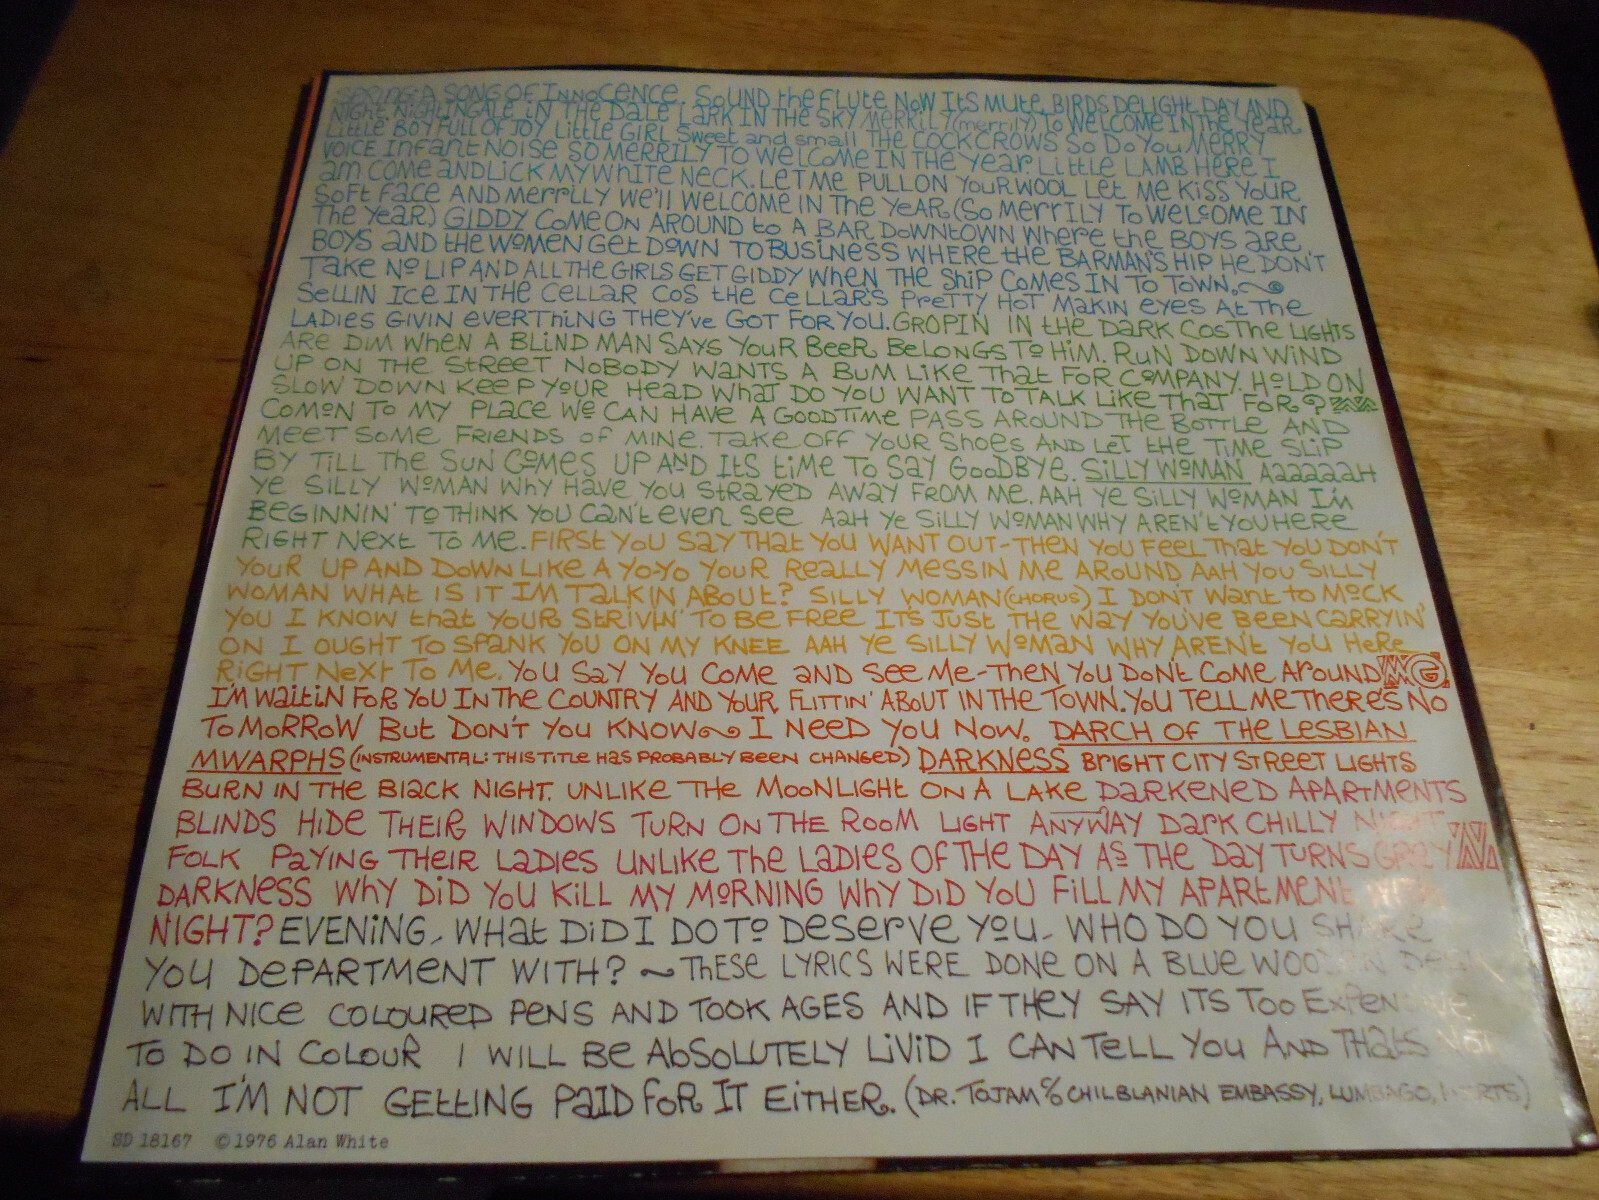 SPRING: A SONG OF INNOCENCE. SOUND the FLUte NOW ITS MUte BIRDS DELIGHT DAY AND
NIGHT NIGHTINGALE IN THE DALE LARK IN THE SKY MERRILY (merrily) To WELCOME IN THE YEAR
Little BOY FULL OF JOY Little GIRL Sweet and small THE COCK CROWS SO Do YoU MERRY
VOICE INFANT NOISE SO MERRILY TO WELCOME IN THE YEAR. LITTLE LAMB HERE I
am COME and LICK MY WHITE NECK. LET ME PULL ON YOUR WOOL LET ME KISS YOUR
SOFT FACE AND MERRILY WE'LL WELCOME IN THE YEAR (SO MERRILY TO WELCOME IN
THE YEAR) GIDDY COME ON AROUND to A BAR DOWNTOWN WHERE the BOYS ARE
BOYS and the WOMEN GET DOWN TO BUSINESS WHERE the BARMAN'S HIP HE DON'T
TAKE No LIP AND ALL THE GIRLS GET GIDDY WHEN THE SHIP COMES IN TO TOWN.
SELLIN ICE IN THE CELLAR COS the CELLAR'S PRETTY HOT MAKIN EYES AT THE
LADIES GIVIN eVERTHING THEY'VE GOT FOR YOU. GROPIN IN the DARK COS THE LIGHTS
ARE DIM WHEN A BLIND MAN SAYS YOUR BEER BELONGS To HIM. RUN DOWN WIND
UP ON THE STREET NOBODY WANTS A BUM LIKE THAT FOR COMPANY. HOLD ON
SLOW DOWN KEEP YOUR HEAD WHAT DO YOU WANT TO TALK LIKE THAT FOR?
COMON TO MY PLACE WE CAN HAVE A GOODTIME PASS AROUND THE BOTTLE AND
MEET SOME FRIENDS OF MINE. TAKE OFF YOUR SHOES AND LET tHE TIME SLIP
BY TILL THE SUN COMES UP AND ITS tIME TO SAY GOODBYE. SILLY WOMAN AaaaaaH
Ye SILLY WOMAN WHY HAVE YOU STRAYED AWAY FROM ME. AAH Ye SILLY WOMAN I'M
BEGINNIN' TO THINK YOU CAN'T EVEN SEE AaH Ye SILLY WOMAN WHY AREN'T YOU HERE
RIGHT NEXT TO ME. FIRST YOU SAY THAT YOU WANT OUT-THEN YOU FEEL THAT YOU DON'T
YOUR UP AND DOWN LIKE A YO-YO YOUR REALLY MESSIN ME AROUND AAH YOU SILLY
WOMAN WHAT IS IT IM TALKIN ABOUT? SILLY WOMAN (CHORUS) I DON'T WANT to MOCK
YOU I KNOW tHAT YOUR STRIVIN' TO BE FREE IT'S JUST THE WAY YOU'VE BEEN CARRYIN'
ON I OUGHT TO SPANK YOU ON MY KNEE AAH Ye SILLY WOMAN WHY AREN'T YOU HERE
RIGHT NEXT TO ME. YOU SAY YOU COME AND SEE ME-THEN YOU DON'T COME AROUND
I'M WAITIN FOR YOU IN THE COUNTRY AND YOUR FLITTIN' ABOUT IN THE TOWN. YOU TELL ME THERE'S NO
TOMORROW BUT DON'T YOU KNOW~ I NEED YOU NOW. DARCH OF THE LESBIAN
MWARPHS (INSTRUMENTAL: THIS TITLE HAS PROBABLY BEEN CHANGED) DARKNESS BRIGHT CITY STREET LIGHTS
BURN IN THE BLACK NIGHT. UNLIKE THE MOONLIGHT ON A LAKE DARKENED APARTMENTS
BLINDS HIDE THEIR WINDOWS TURN ON THE ROOM LIGHT ANYWAY DARK CHILLY NIGHT
FOLK PAYING THEIR LADIES UNLIKE THE LADIES OF THE DAY AS THE DAY TURNS GREY
DARKNESS WHY DID YOU KILL MY MORNING WHY DID YOU FILL MY APARTMENT WITH
NIGHT? EVENING, WHAT DID I DO TO DESERVE YOU, WHO DO YOU SHARE
YOU DEPARTMENT WITH? ~THESE LYRICS WERE DONE ON A BLUE WOODEN DESK
WITH NICE COLOURED PENS AND TOOK AGES AND IF THEY SAY ITS TOO EXPENSIVE
TO DO IN COLOUR I WILL BE ABSOLUTELY LIVID I CAN TELL YOU AND THATS NOT
ALL I'M NOT GETTING PAID FOR IT EITHER. (DR. TOJAM c/o CHILBLANIAN EMBASSY, LUMBAGO,
SD 18167 ©1976 Alan White